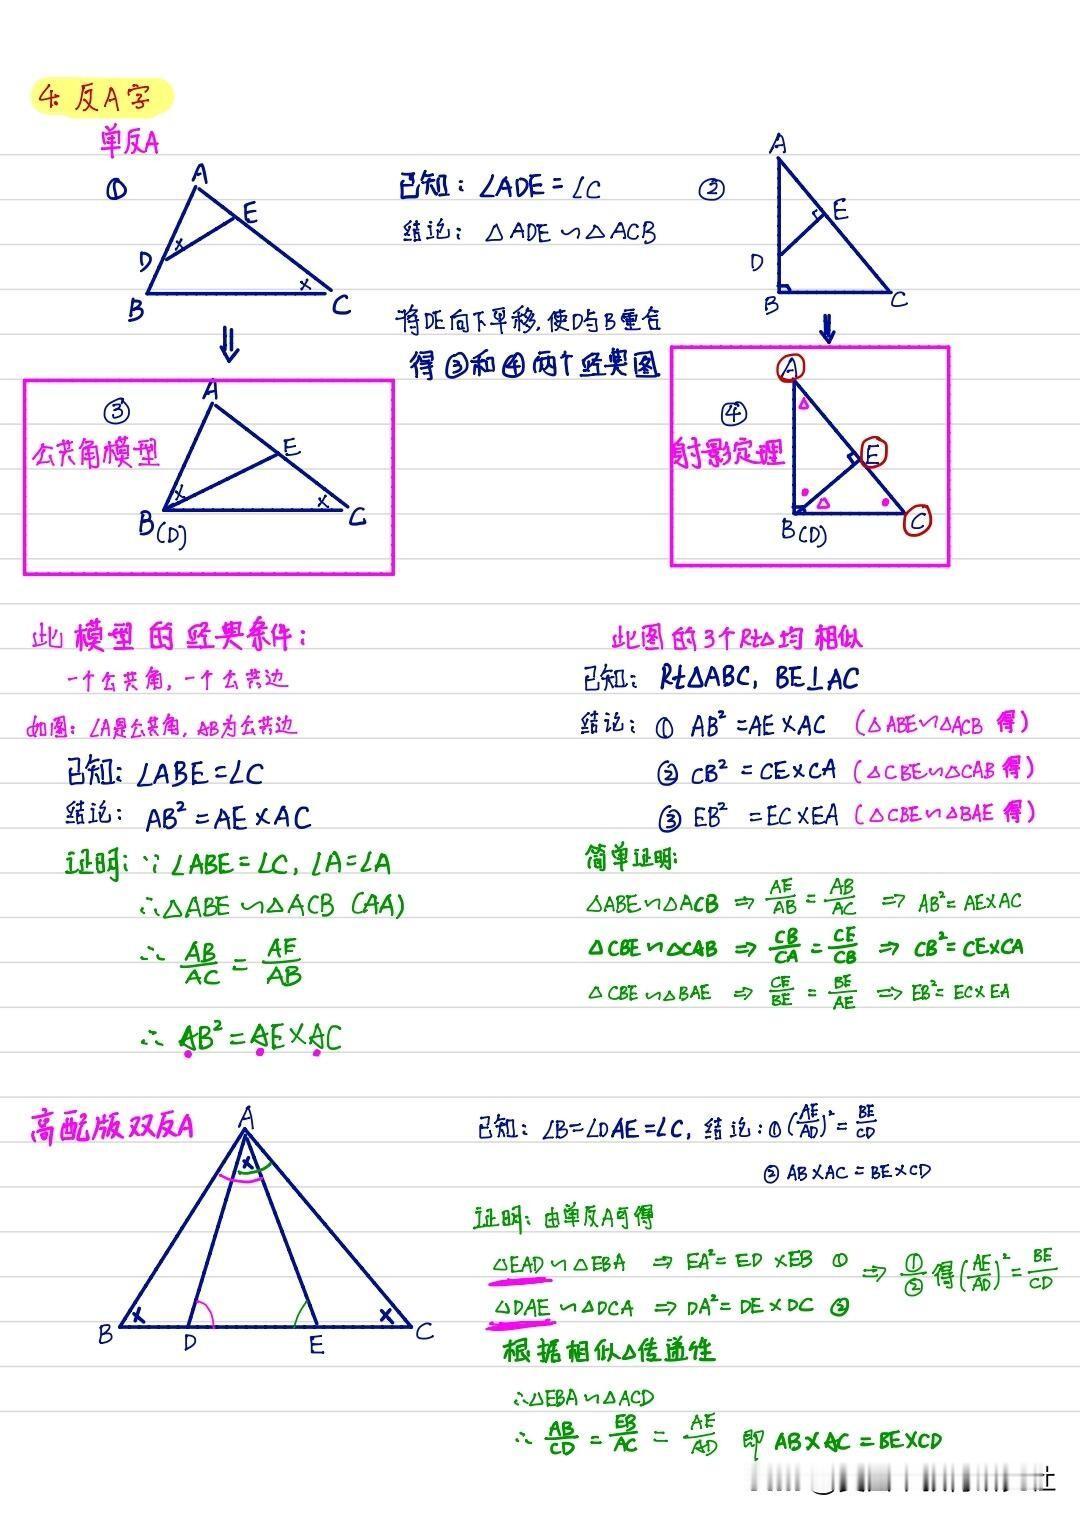 4. 反A字
单反A
①
A
E
D
B
C
已知: ∠ADE = ∠C
结论: △ADE ∽ △ACB
②
A
E
D
B
C
将DE向下平移,使D与B重合
得③和④两个经典图
③
公共角模型
A
E
B(D)
C
④
射影定理
A
E
B(D)
C
此模型的经典条件:
一个公共角, 一个公共边
如图: ∠A是公共角, AB为公共边
已知: ∠ABE = ∠C
结论: AB² = AE×AC
证明: ∵ ∠ABE = ∠C, ∠A = ∠A
∴ △ABE ∽ △ACB (AA)
∴ AB/AC = AE/AB
∴ AB² = AE×AC
此图的3个Rt△均相似
已知: Rt△ABC, BE⊥AC
结论: ① AB² = AE×AC (△ABE∽△ACB 得)
② CB² = CE×CA (△CBE∽△CAB 得)
③ EB² = EC×EA (△CBE∽△BAE 得)
简单证明:
△ABE∽△ACB ⇒ AE/AB = AB/AC ⇒ AB² = AE×AC
△CBE∽△CAB ⇒ CB/CA = CE/CB ⇒ CB² = CE×CA
△CBE∽△BAE ⇒ CE/BE = BE/AE ⇒ EB² = EC×EA
高配版双反A
A
B
D
E
C
已知: ∠B=∠DAE=∠C, 结论: ① (AE/AD)² = BE/CD
② AB×AC = BE×CD
证明: 由单反A可得
△EAD ∽ △EBA ⇒ EA² = ED×EB ① ⇒ ①/② 得 (AE/AD)² = BE/CD
△DAE ∽ △DCA ⇒ DA² = DE×DC ②
根据相似△传递性
∴ △EBA ∽ △ACD
∴ AB/CD = EB/AC = AE/AD 即 AB×AC = BE×CD